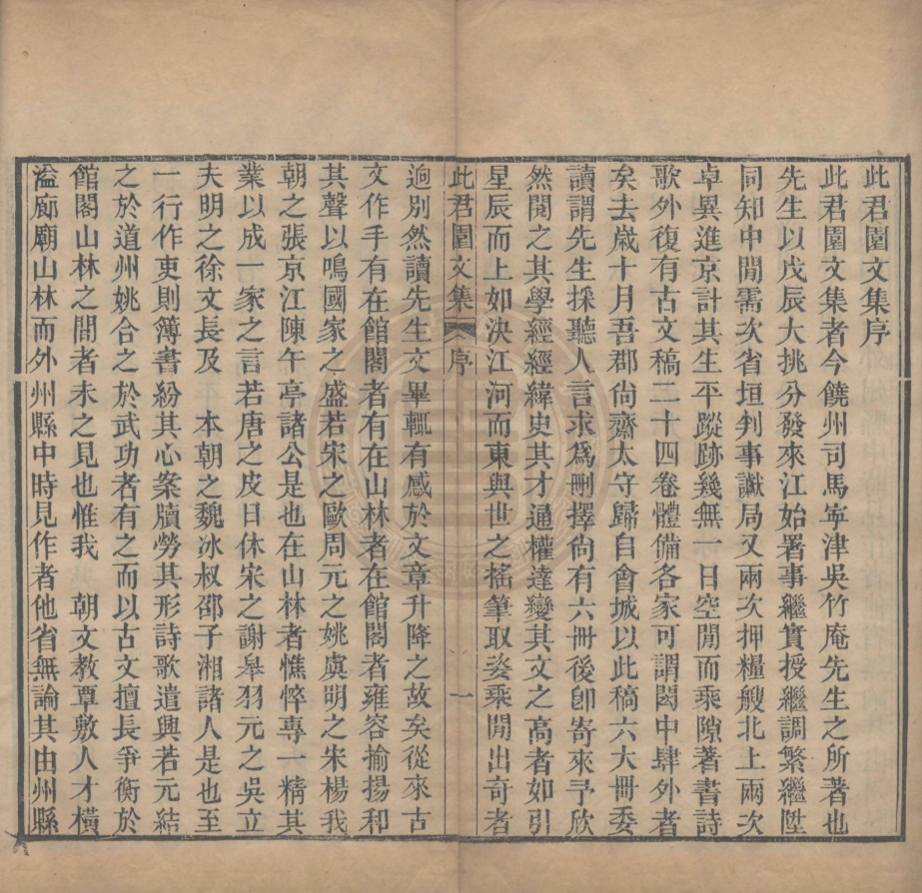 此君園文集序
此君園文集者今饒州司馬寧津吳竹庵先生之所著也
先生以戊辰大挑分發來江始署事繼實授繼調繁繼陞
同知中間需次省垣判事讞局又兩次押糧艘北上兩次
卓異進京計其生平蹤跡幾無一日空閒而乘隙著書詩
歌外復有古文稿二十四卷體備各家可謂閎中肆外者
矣去歲十月吾郡尚齋太守歸自會城以此稿六大冊委
讀謂先生採聽人言求為刪擇尚有六冊後卽寄來予欣
然閱之其學經經緯史其才通權達變其文之高者如引
星辰而上如決江河而東與世之搖筆取姿乘閒出奇者
此君園文集 序 一
逈別然讀先生文畢輒有感於文章升降之故矣從來古
文作手有在館閣者有在山林者在館閣者雍容揄揚和
其聲以鳴國家之盛若宋之歐周元之姚虞明之朱楊我
朝之張京江陳午亭諸公是也在山林者憔悴專一精其
業以成一家之言若唐之皮日休宋之謝皋羽元之吳立
夫明之徐文長及 本朝之魏冰叔邵子湘諸人是也至
一行作吏則簿書紛其心案牘勞其形詩歌遣興若元結
之於道州姚合之於武功者有之而以古文擅長爭衡於
館閣山林之間者未之見也惟我 朝文教覃敷人才橫
溢廊廟山林而外州縣中時見作者他省無論其由州縣